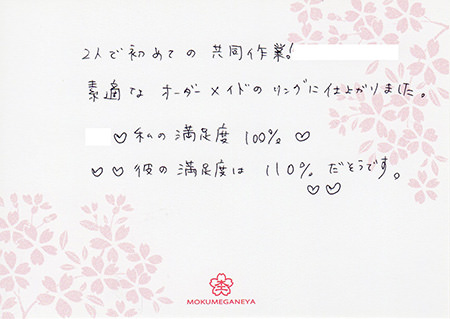 2人で初めての共同作業!
素適なオーダーメイドのリングに仕上がりました。
♡私の満足度100%♡
♡♡彼の満足度は110%だそうです。
♡♡
杢
MOKUMEGANEYA